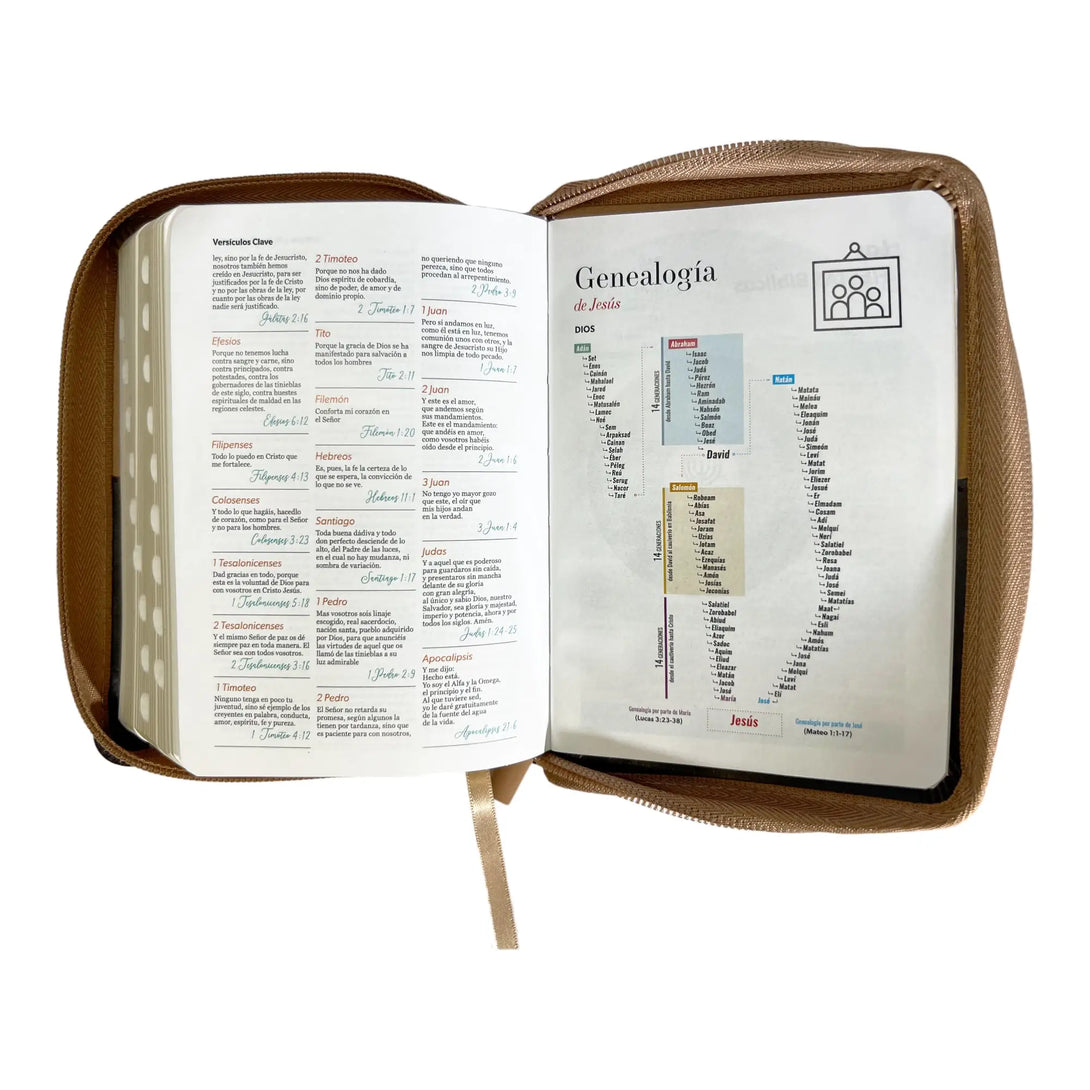 Versículos Clave
ley, sino por la fe de Jesucristo,
nosotros también hemos
creído en Jesucristo, para ser
justificados por la fe de Cristo
y no por las obras de la ley, por
cuanto por las obras de la ley
nadie será justificado.
Gálatas 2:16
Efesios
Porque no tenemos lucha
contra sangre y carne, sino
contra principados, contra
potestades, contra los
gobernadores de las tinieblas
de este siglo, contra huestes
espirituales de maldad en las
regiones celestes.
Efesios 6:12
Filipenses
Todo lo puedo en Cristo que
me fortalece.
Filipenses 4:13
Colosenses
Y todo lo que hagáis, hacedlo
de corazón, como para el Señor
y no para los hombres.
Colosenses 3:23
1 Tesalonicenses
Dad gracias en todo, porque
esta es la voluntad de Dios para
con vosotros en Cristo Jesús.
1 Tesalonicenses 5:18
2 Tesalonicenses
Y el mismo Señor de paz os dé
siempre paz en toda manera. El
Señor sea con todos vosotros.
2 Tesalonicenses 3:16
1 Timoteo
Ninguno tenga en poco tu
juventud, sino sé ejemplo de los
creyentes en palabra, conducta,
amor, espíritu, fe y pureza.
1 Timoteo 4:12
2 Timoteo
Porque no nos ha dado
Dios espíritu de cobardía,
sino de poder, de amor y de
dominio propio.
2 Timoteo 1:7
Tito
Porque la gracia de Dios se ha
manifestado para salvación a
todos los hombres
Tito 2:11
Filemón
Conforta mi corazón en
el Señor
Filemón 1:20
Hebreos
Es, pues, la fe la certeza de lo
que se espera, la convicción de
lo que no se ve.
Hebreos 11:1
Santiago
Toda buena dádiva y todo
don perfecto desciende de lo
alto, del Padre de las luces,
en el cual no hay mudanza, ni
sombra de variación.
Santiago 1:17
1 Pedro
Mas vosotros sois linaje
escogido, real sacerdocio,
nación santa, pueblo adquirido
por Dios, para que anunciéis
las virtudes de aquel que os
llamó de las tinieblas a su
luz admirable
1 Pedro 2:9
2 Pedro
El Señor no retarda su
promesa, según algunos la
tienen por tardanza, sino que
es paciente para con nosotros,
no queriendo que ninguno
perezca, sino que todos
procedan al arrepentimiento.
2 Pedro 3:9
1 Juan
Pero si andamos en luz,
como él está en luz, tenemos
comunión unos con otros, y la
sangre de Jesucristo su Hijo
nos limpia de todo pecado.
1 Juan 1:7
2 Juan
Y este es el amor,
que andemos según
sus mandamientos.
Este es el mandamiento:
que andéis en amor,
como vosotros habéis
oído desde el principio.
2 Juan 1:6
3 Juan
No tengo yo mayor gozo
que este, el oír que
mis hijos andan
en la verdad.
3 Juan 1:4
Judas
Y a aquel que es poderoso
para guardaros sin caída,
y presentaros sin mancha
delante de su gloria
con gran alegría,
al único y sabio Dios, nuestro
Salvador, sea gloria y majestad,
imperio y potencia, ahora y por
todos los siglos. Amén.
Judas 1:24-25
Apocalipsis
Y me dijo:
Hecho está.
Yo soy el Alfa y la Omega,
el principio y el fin.
Al que tuviere sed,
yo le daré gratuitamente
de la fuente del agua
de la vida.
Apocalipsis 21:6
Genealogía
de Jesús
DIOS
Adán
Set
Enos
Cainán
Mahalael
Jared
Enoc
Matusalén
Lamec
Noé
Sem
Arpaksad
Cainan
Selah
Éber
Péleg
Reú
Serug
Nacor
Taré
14 GENERACIONES
desde Abraham hasta David
Abraham
Isaac
Jacob
Judá
Pérez
Hezrón
Ram
Aminadab
Nahsón
Salmón
Booz
Obed
Jesé
David
14 GENERACIONES
desde David al cautiverio en Babilonia
Salomón
Roboam
Abías
Asa
Josafat
Joram
Uzías
Jotam
Acaz
Ezequías
Manasés
Amón
Josías
Jeconías
14 GENERACIONES
desde el cautiverio hasta Cristo
Salatiel
Zorobabel
Abiud
Eliaquim
Azor
Sadoc
Aquim
Eliud
Eleazar
Matán
Jacob
José
María
Natán
Matata
Mainán
Melea
Eleaquim
Jonán
José
Judá
Simeón
Leví
Matat
Jorim
Eliezer
Josué
Er
Elmadam
Cosam
Adi
Melqui
Neri
Salatiel
Zorobabel
Resa
Joana
Judá
José
Semei
Matatías
Maat
Nagai
Esli
Nahum
Amós
Matatías
José
Jana
Melqui
Leví
Matat
Elí
José
Genealogía por parte de María
(Lucas 3:23-38)
Jesús
Genealogía por parte de José
(Mateo 1:1-17)